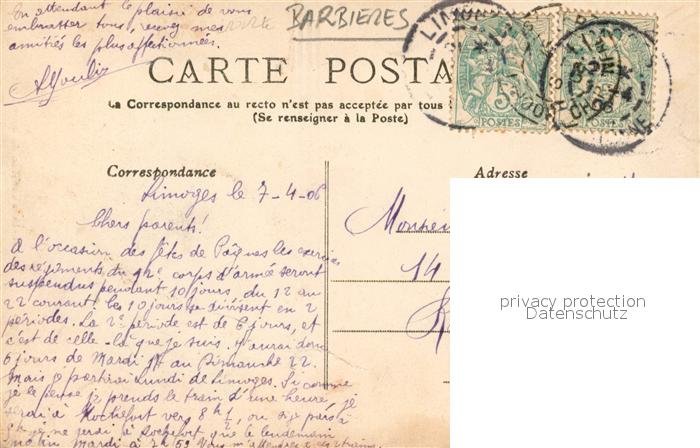 En attendant le plaisir de vous
embrasser tous, recevez mes
amitiés les plus affectionnées.
BARBIERES
CARTE POSTA
La Correspondance au recto n'est pas acceptée par tous
(Se renseigner à la Poste)
5
POSTES
POSTES
Correspondance
Adresse
Limoges le 7-4-06
Chers parents!
A l'occasion des fêtes de Pâques les exercices
des régiments du 12e corps d'armée seront
suspendus pendant 10 jours, du 12 au
22 courant. les 10 jours se divisent en 2
périodes. La 2e période est de 6 jours, et
c'est de celle-là que je suis. J'aurai donc
6 jours de Mardi 17 au Dimanche 22.
Mais je partirai Lundi de Limoges. Si comme
je le pense je prends le train d'une heure, je
serai à Rochefort vers 8h½, ou si je pars à
je ne serai à Rochefort que le lendemain
matin Mardi à 7h59
Monsieur
14
privacy protection
Datenschutz